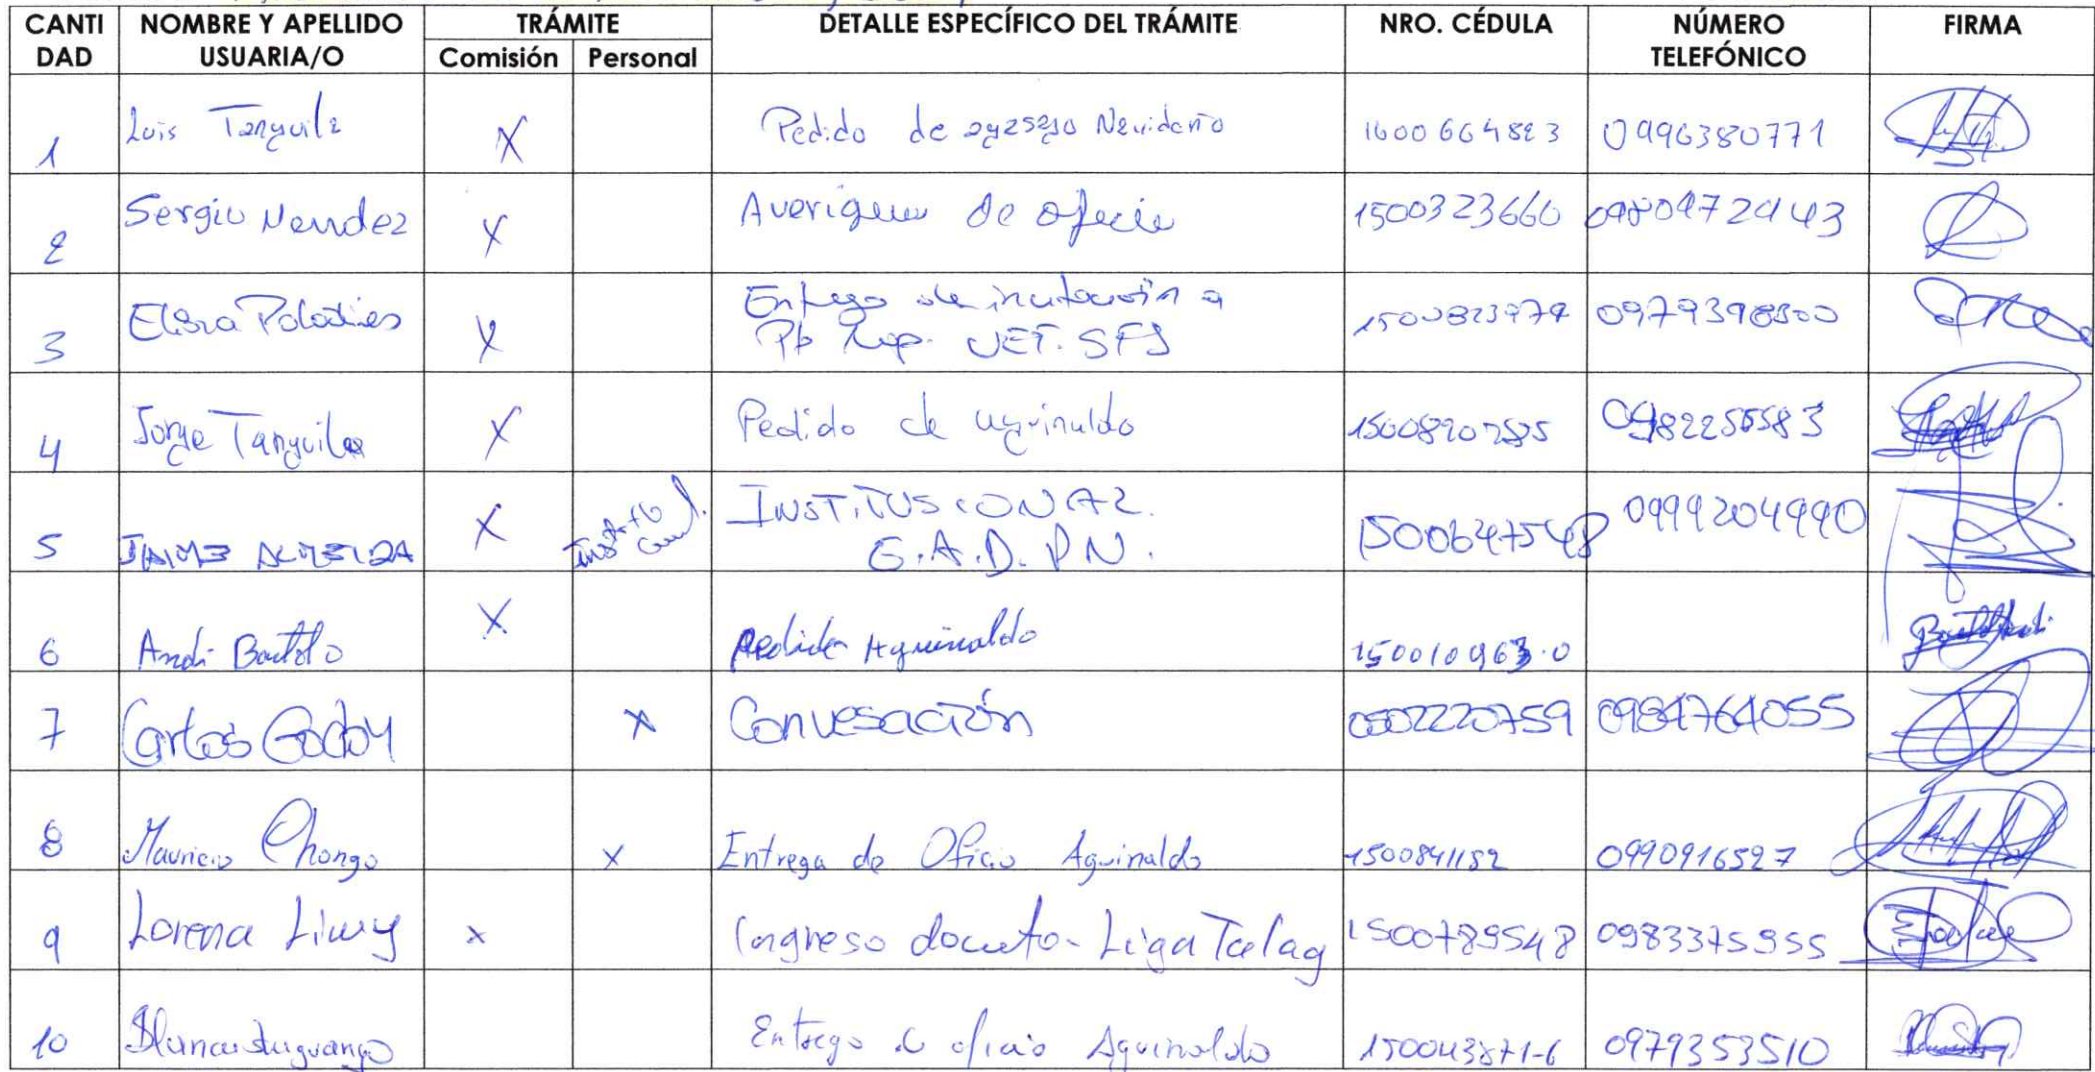 CANTIDAD NOMBRE Y APELLIDO USUARIA/O TRÁMITE Comisión Personal DETALLE ESPECÍFICO DEL TRÁMITE NRO. CÉDULA NÚMERO TELEFÓNICO FIRMA
1 Luis Tanguila X Pedido de Navideño 1600664883 0996380771
2 Sergio Mendez X de oficio 1500323660
3 X Entrega de invitación a UET. SFS 0979398300
4 Jorge Tanguila X Pedido de aguinaldo 0982255583
5 JAIME ALMEIDA X INSTITUSIONAL G.A.D. P.N. 1500647548 0999204990
6 Andi X Pedido Aguinaldo 150010963-0
7 Carlos Godoy X Convesación 0502220759 0984764055
8 Mauricio Chongo X Entrega de Oficio Aguinaldo 1500841182 0990916527
9 Lorena X Ingreso Liga 1500789548 0983375955
10 Entrega oficio Aguinaldo 150043871-6 0979353510